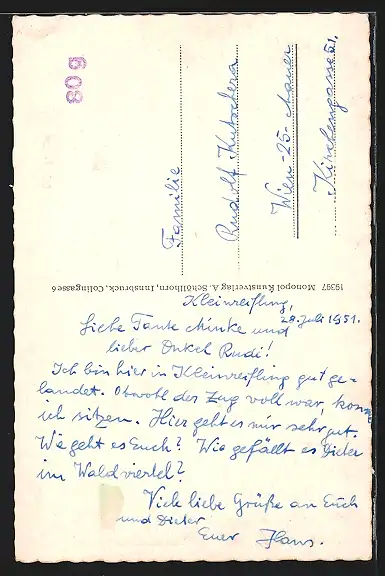 Kleinreifling,
28. Juli 1951.
Liebe Tante Minke und
lieber Onkel Rudi!
Ich bin hier in Kleinreifling gut ge-
landet. Obwohl der Zug voll war, konnte
ich sitzen. Hier geht es mir sehr gut.
Wie geht es Euch? Wie gefällt es Dieter
im Waldviertel?
Viele liebe Grüße an Euch
und Dieter
Euer Hans.
19397 Monopol Kunstverlag A. Schöllhorn, Innsbruck, Colingasse 6
Familie
Rudolf Kutschera
Wien - 25 - Mauer
Kirchengasse 51.
803